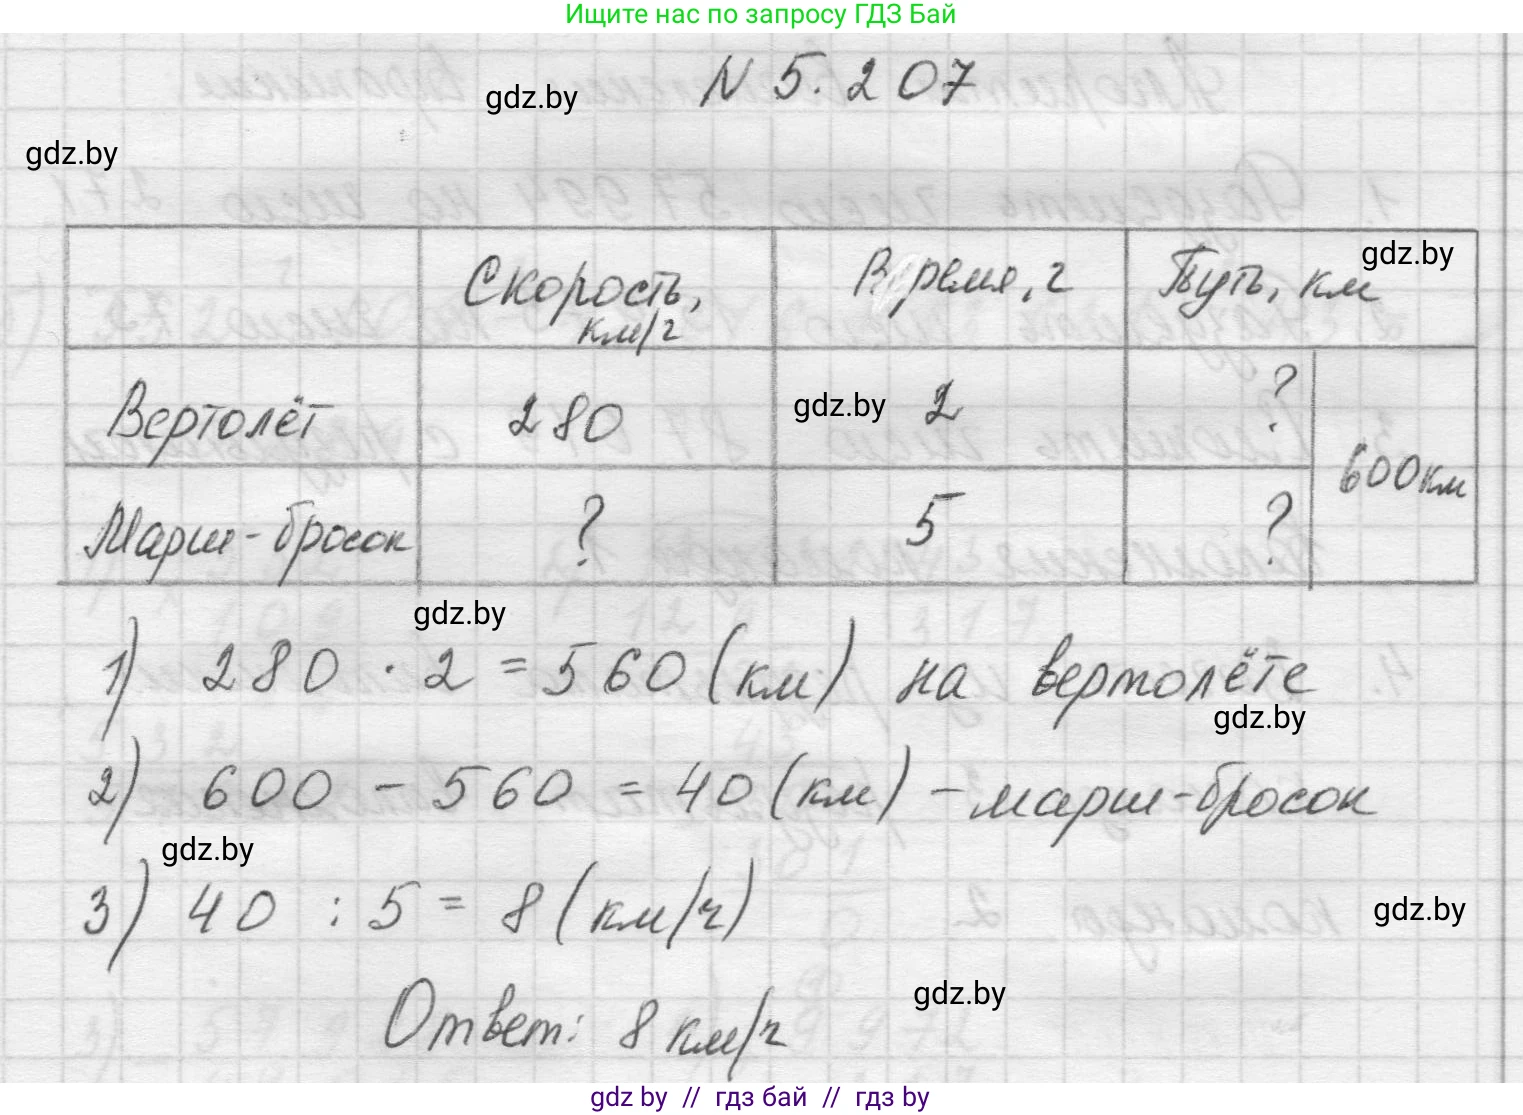 Ищите нас по запросу ГДЗ Бай
N 5.207
gdz.by
gdz.by
gdz.by
Скорость, км/г Время, г Путь, км
Вертолёт 280 gdz.by 2 ?
600км
Марш-бросок ? 5 ?
gdz.by
1) 280 · 2 = 560 (км) на вертолёте
gdz.by
2) 600 - 560 = 40 (км) - марш-бросок
gdz.by
3) 40 : 5 = 8 (км/ч)
gdz.by
gdz.by
Ответ: 8 км/ч
gdz by // гдз бай // gdz by